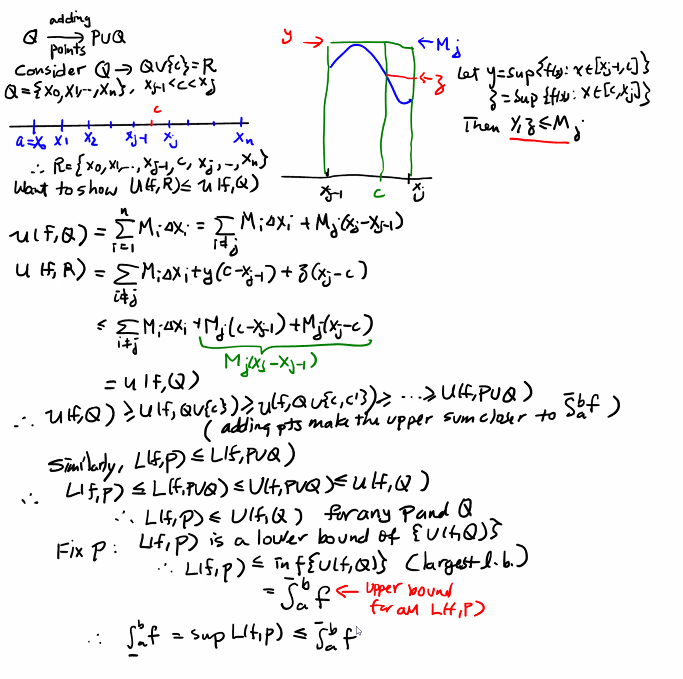 adding
Q ⟶ P∪Q
points
Consider Q → Q∪{c} = R
Q = {x₀, x₁, ..., xₙ}, xⱼ₋₁ < c < xⱼ
c
a=x₀ x₁ x₂ xⱼ₋₁ xⱼ xₙ
∴ R = {x₀, x₁, ..., xⱼ₋₁, c, xⱼ, ..., xₙ}
Want to show U(f,R) ≤ U(f,Q)
y → ← Mⱼ
← z
xⱼ₋₁ c xⱼ
Let y = sup{f(x): x∈[xⱼ₋₁, c]}
z = sup{f(x): x∈[c, xⱼ]}
Then y, z ≤ Mⱼ
U(f,Q) = Σᵢ₌₁ⁿ Mᵢ Δxᵢ = Σ_{i≠j} Mᵢ Δxᵢ + Mⱼ(xⱼ - xⱼ₋₁)
U(f,R) = Σ_{i≠j} Mᵢ Δxᵢ + y(c - xⱼ₋₁) + z(xⱼ - c)
≤ Σ_{i≠j} Mᵢ Δxᵢ + Mⱼ(c - xⱼ₋₁) + Mⱼ(xⱼ - c)
Mⱼ(xⱼ - xⱼ₋₁)
= U(f,Q)
∴ U(f,Q) ≥ U(f, Q∪{c}) ≥ U(f, Q∪{c,c'}) ≥ ... ≥ U(f, P∪Q)
(adding pts make the upper sum closer to ∫̄ₐᵇ f)
Similarly, L(f,P) ≤ L(f, P∪Q)
∴ L(f,P) ≤ L(f, P∪Q) ≤ U(f, P∪Q) ≤ U(f,Q)
∴ L(f,P) ≤ U(f,Q) for any P and Q
Fix P: L(f,P) is a lower bound of {U(f,Q)}
∴ L(f,P) ≤ inf{U(f,Q)} (largest l.b.)
= ∫̄ₐᵇ f ← upper bound
for all L(f,P)
∴ ∫̲ₐᵇ f = sup L(f,P) ≤ ∫̄ₐᵇ f